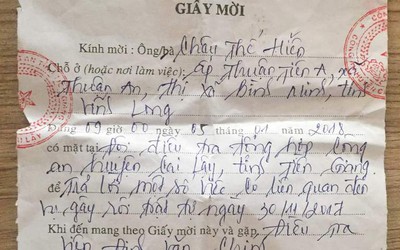 GIẤY MỜI
Kính mời: Ông/bà Chây Thế Hiển
Chỗ ở (hoặc nơi làm việc): ấp Thuận Tiến A, xã
Thuận An, Thị xã Bình Minh, tỉnh
Vĩnh Long
Đúng 09 giờ 00 ngày 05 tháng 01 năm 2018
có mặt tại Đội điều tra tổng hợp công
an huyện Cai Lậy, tỉnh Tiền Giang
để trả lời một số việc có liên quan đến
vụ gây rối trật tự ngày 30/11/2017
Khi đến mang theo Giấy mời này và gặp Điều tra
viên